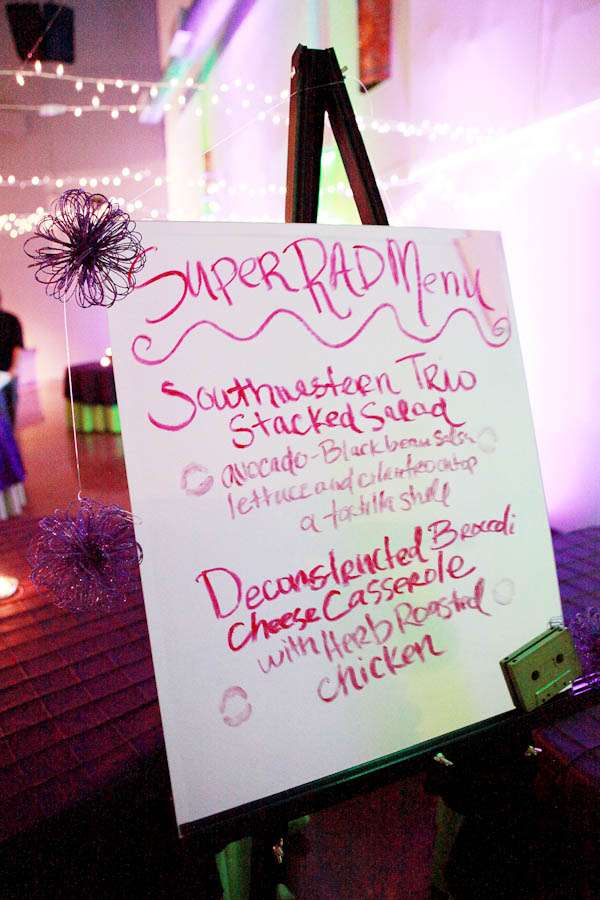 Super RAD Menu
Southwestern Trio
Stacked Salad
avocado-Black bean salsa
lettuce and cilantro on top
a tortilla shell
Deconstructed Broccoli
Cheese Casserole
with Herb Roasted
chicken